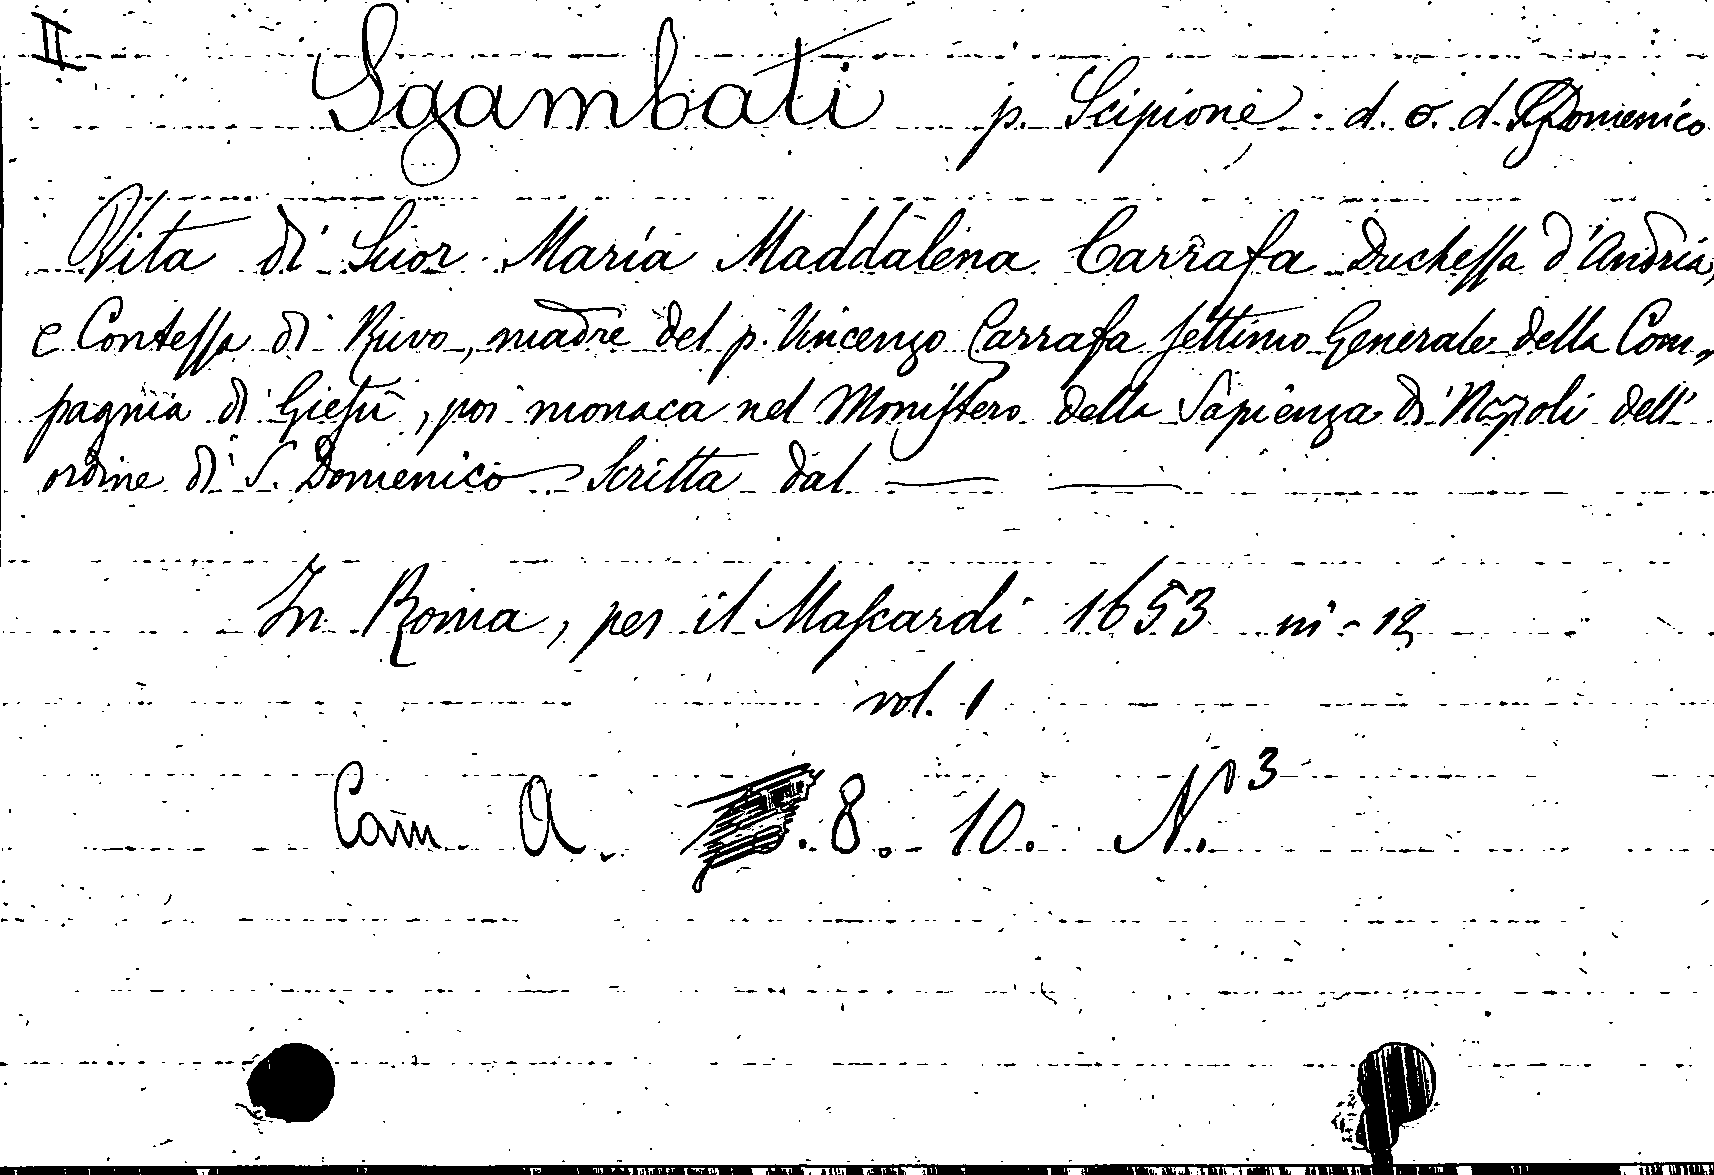 II
Sgambati p. Scipione d. o. d. S. Domenico
Vita di Suor Maria Maddalena Carrafa Duchessa d'Andria,
e Contessa di Ruvo, madre del p. Vincenzo Carrafa settimo Generale della Com,
pagnia di Giesù, poi monaca nel Monistero della Sapienza di Napoli dell'
ordine di S. Domenico Scritta dal — —
In Roma, per il Mascardi 1653 in-12
vol. 1
Cam A. . 8. 10. N. 3